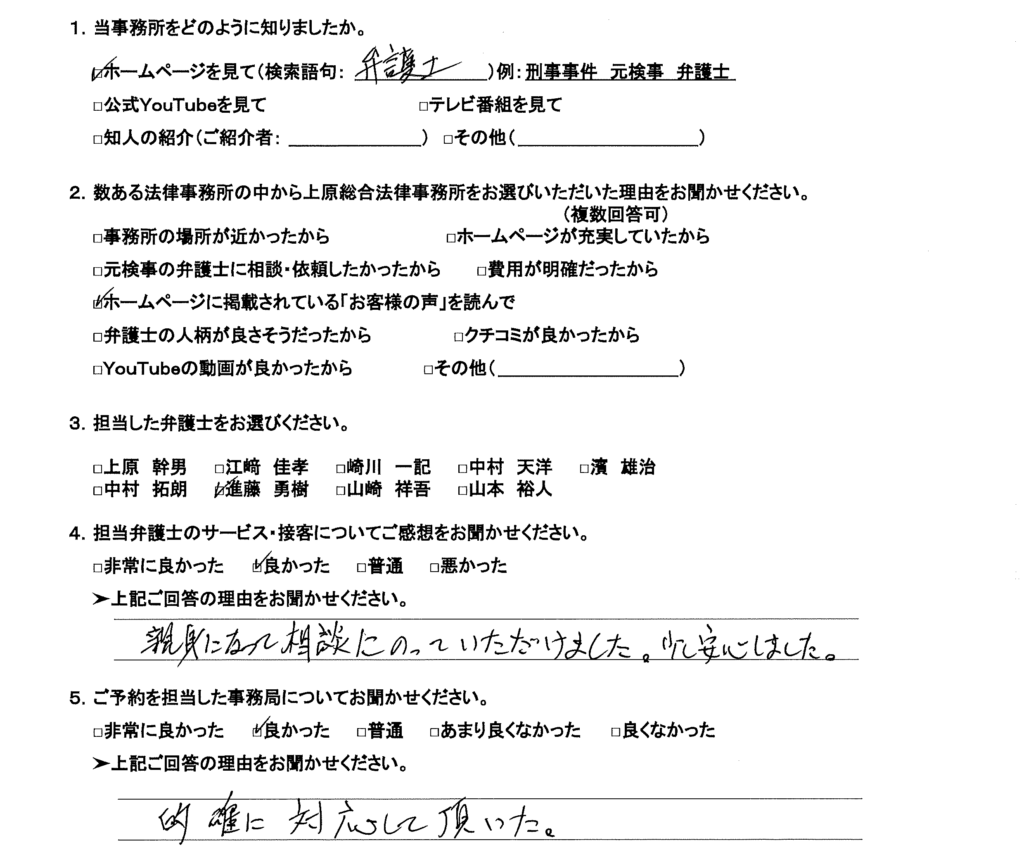 1. 当事務所をどのように知りましたか。
☑ホームページを見て(検索語句: 弁護士 )例:刑事事件 元検事 弁護士
□公式YouTubeを見て □テレビ番組を見て
□知人の紹介(ご紹介者: ) □その他( )
2. 数ある法律事務所の中から上原総合法律事務所をお選びいただいた理由をお聞かせください。
(複数回答可)
□事務所の場所が近かったから □ホームページが充実していたから
□元検事の弁護士に相談・依頼したかったから □費用が明確だったから
☑ホームページに掲載されている「お客様の声」を読んで
□弁護士の人柄が良さそうだったから □クチコミが良かったから
□YouTubeの動画が良かったから □その他( )
3. 担当した弁護士をお選びください。
□上原 幹男 □江﨑 佳孝 □崎川 一記 □中村 天洋 □濱 雄治
□中村 拓朗 ☑進藤 勇樹 □山崎 祥吾 □山本 裕人
4. 担当弁護士のサービス・接客についてご感想をお聞かせください。
□非常に良かった ☑良かった □普通 □悪かった
➤上記ご回答の理由をお聞かせください。
親身になって相談にのっていただけました。少し安心しました。
5. ご予約を担当した事務局についてお聞かせください。
□非常に良かった ☑良かった □普通 □あまり良くなかった □良くなかった
➤上記ご回答の理由をお聞かせください。
的確に対応して頂いた。